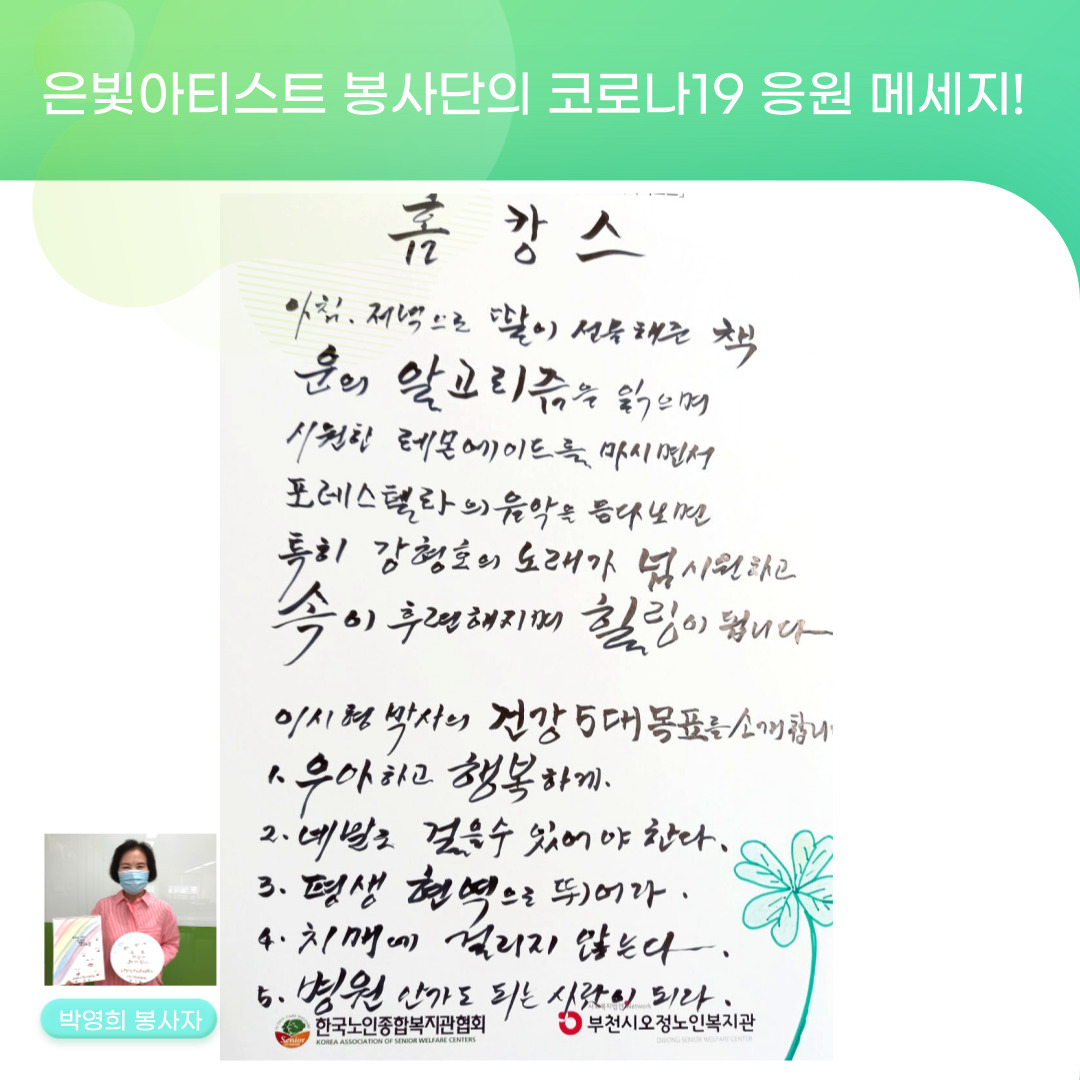 은빛아티스트 봉사단의 코로나19 응원 메세지!
홈 캉 스
아침. 저녁으로 딸이 선물해준 책
운의 알고리즘을 읽으며
시원한 레몬에이드를 마시면서
포레스텔라의 음악을 듣다보면
특히 강형호의 노래가 넘 시원하고
속이 후련해지며 힐링이 됩니다
이시형 박사의 건강 5대목표를 소개합니
1. 우아하고 행복하게.
2. 네발로 걸을수 있어야 한다.
3. 평생 현역으로 뛰어라.
4. 치매에 걸리지 않는다.
5. 병원 안가도 되는 사람이 되라.
Senior
한국노인종합복지관협회
KOREA ASSOCIATION OF SENIOR WELFARE CENTERS
부천시오정노인복지관
OJJONG SENIOR WELFARE CENTER
박영희 봉사자